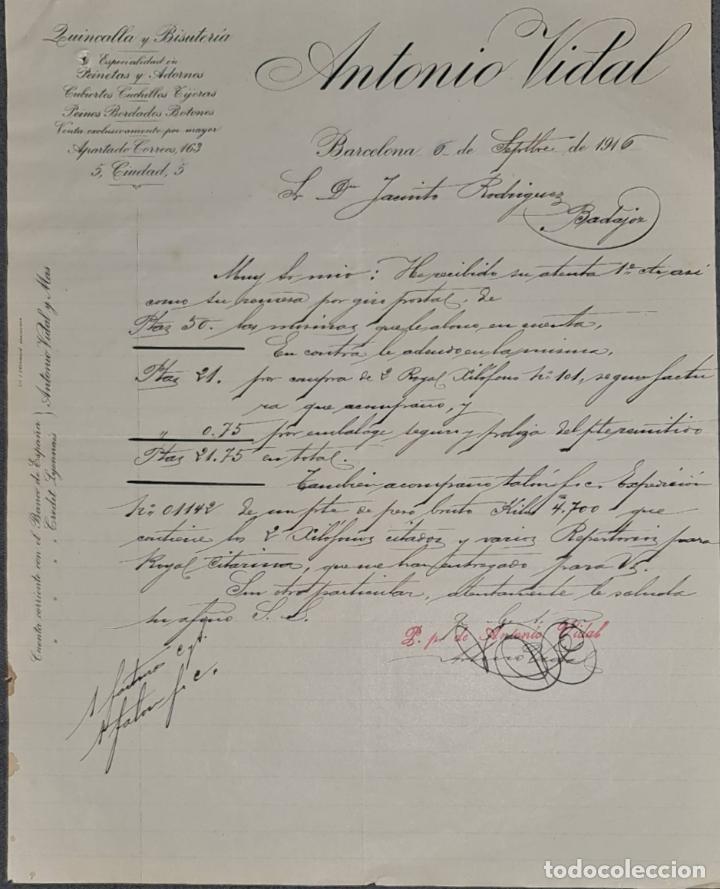 Quincalla y Bisutería
Especialidad en
Peinetas y Adornos
Cubiertos Cuchillos Tijeras
Peines Bordados Botones
Venta exclusivamente por mayor
Apartado Correos, 163
5, Ciudad, 5
Antonio Vidal
Barcelona 6 de Septbre de 1916
Sr Dn Jacinto Rodriguez
Badajoz
Muy Sr mio: He recibido su atenta 1º cte asi
como su remesa por giro postal, de
Ptas 50. las mismas que le abono en cuenta,
En contra le adeudo en la misma,
Ptas 21. por compra de 2 Royal Xilófono nº 101, segun factu
ra que acompaño, y
" 0.75 por embalage seguro y del pte remitido
Ptas 21.75 en total.
Tambien acompaño talón f.c. Expedición
nº 01142 de un pte de peso bruto Kilos 4,700 que
contiene los 2 Xilófonos citados y varios Repertorios para
Royal Citarina, que me han entregado para V.
Sin otro particular, atentamente le saluda
su afmo S. S.
P. p. de Antonio Vidal
1 factura
1 talon f.c.
Cuenta corriente con el Banco de España } Antonio Vidal y Mas
" " " " Crédit Lyonnais
todocoleccion